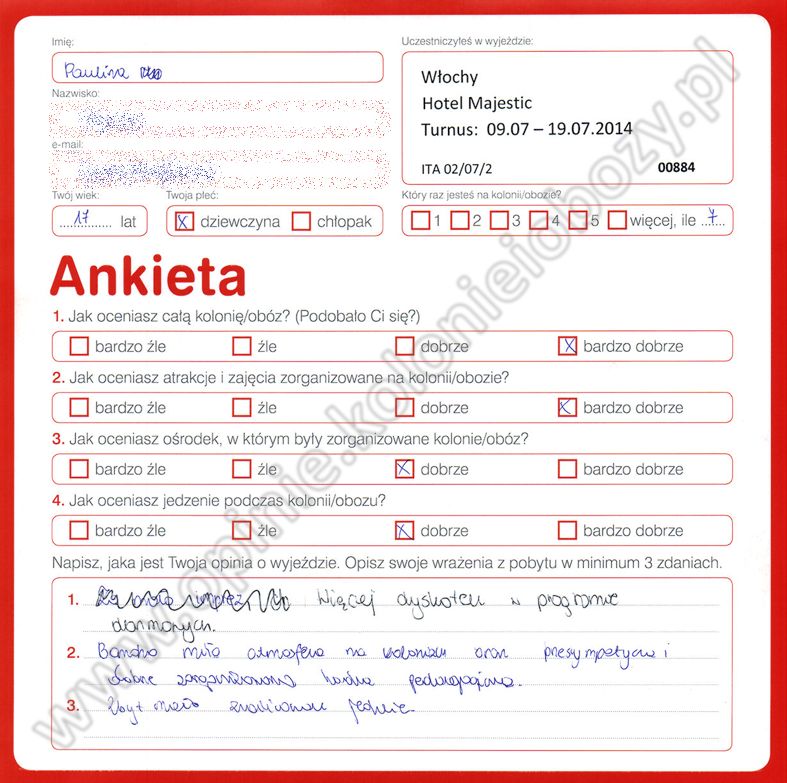 Imię:
Paulina
Uczestniczyłeś w wyjeździe:
Włochy
Hotel Majestic
Turnus: 09.07 – 19.07.2014
ITA 02/07/2 00884
Nazwisko:
e-mail:
Twój wiek: Twoja płeć:
17 lat X dziewczyna chłopak
Który raz jesteś na kolonii/obozie?
1 2 3 4 5 więcej, ile 7
Ankieta
1. Jak oceniasz całą kolonię/obóz? (Podobało Ci się?)
bardzo źle źle dobrze X bardzo dobrze
2. Jak oceniasz atrakcje i zajęcia zorganizowane na kolonii/obozie?
bardzo źle źle dobrze X bardzo dobrze
3. Jak oceniasz ośrodek, w którym były zorganizowane kolonie/obóz?
bardzo źle źle X dobrze bardzo dobrze
4. Jak oceniasz jedzenie podczas kolonii/obozu?
bardzo źle źle X dobrze bardzo dobrze
Napisz, jaka jest Twoja opinia o wyjeździe. Opisz swoje wrażenia z pobytu w minimum 3 zdaniach.
1. Więcej dyskotek w programie
darmowych.
2. Bardzo miła atmosfera na koloniach oraz przesympatyczna i
dobrze zorganizowana kadra pedagogiczna.
3. Zbyt mało jedzenie.
www.opinie.kolonieiobozy.pl